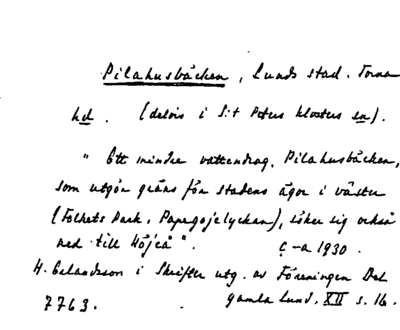 Pilahusbäcken, Lunds stad. Torna
hd. (delvis i S:t Peters klosters sn).
" Ett mindre vattendrag, Pilahusbäcken,
som utgör gräns för stadens ägor i väster
(Folkets Park, Papegojelyckan), söker sig också
ned till Höjeå".
c-a 1930.
H. Erlandsson i Skrifter utg. av Föreningen Det
gamla Lund, XII s. 16.
7763.